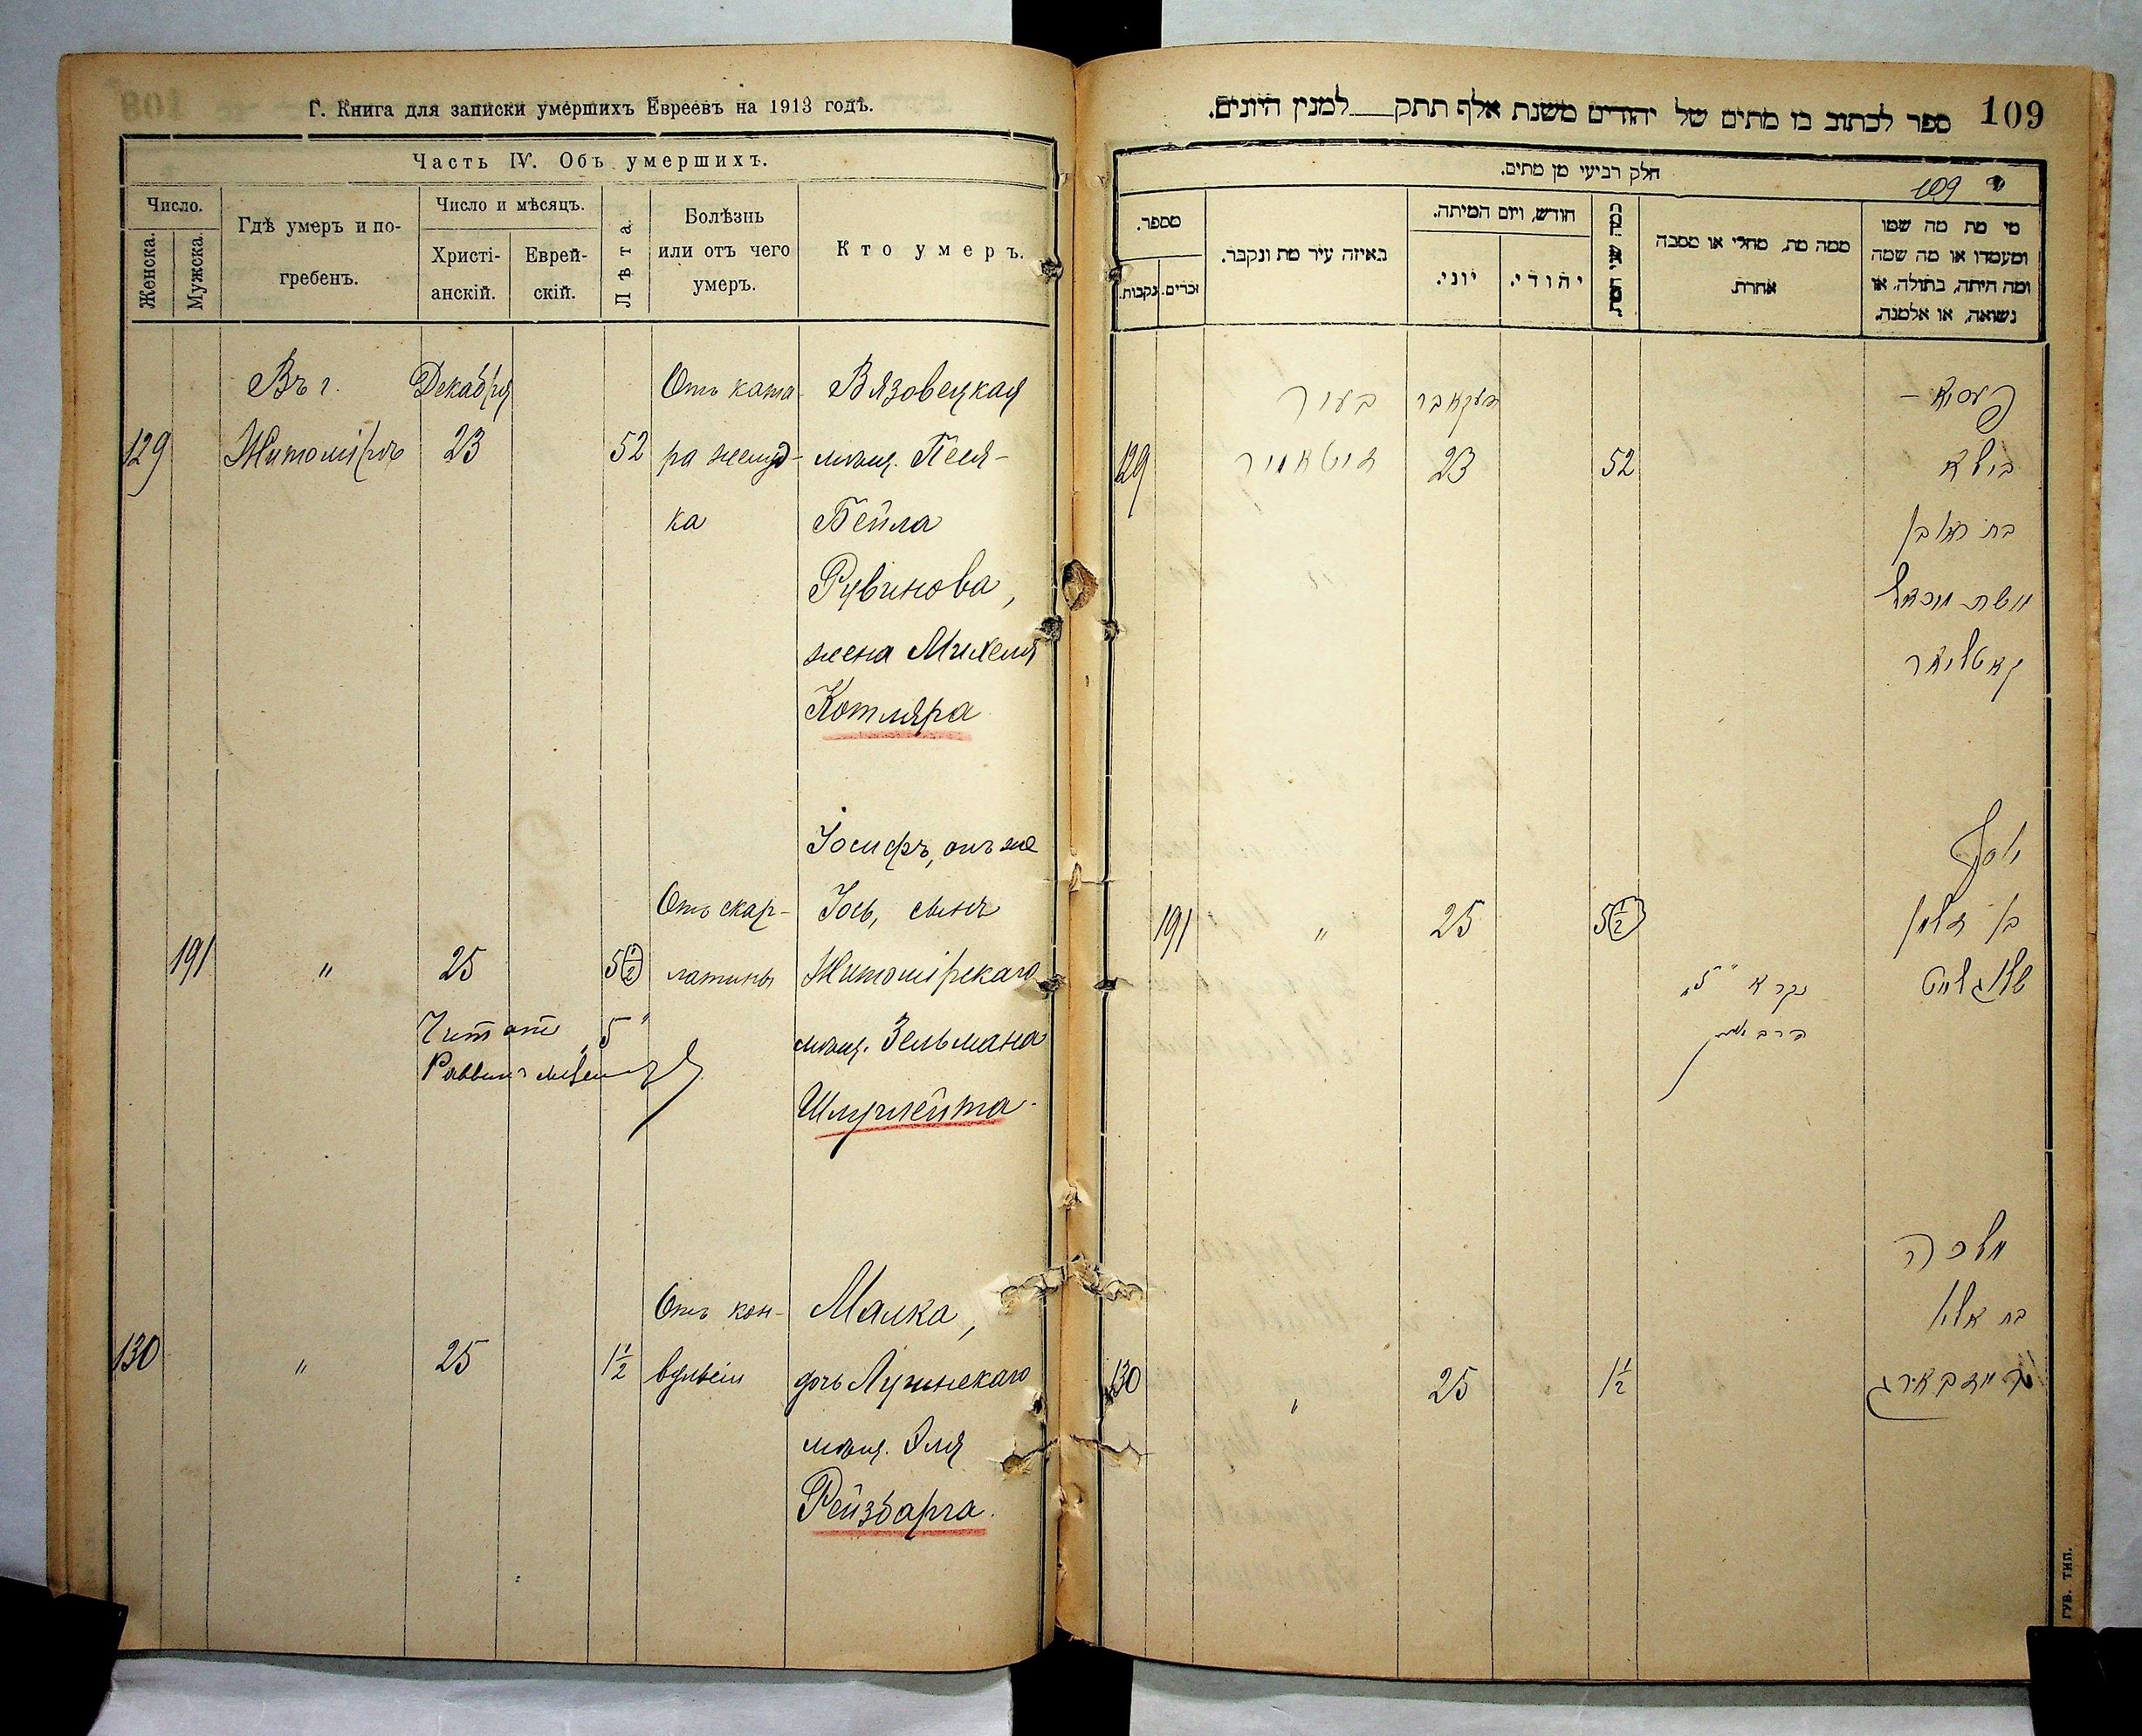 Г. Книга для записки умершихъ Евреевъ на 1913 годъ.
Часть IV. Объ умершихъ.
Число.
Женска.
Мужска.
Гдѣ умеръ и по-
гребенъ.
Число и мѣсяцъ.
Христі-
анскій.
Еврей-
скій.
Лѣта.
Болѣзнь
или отъ чего
умеръ.
Кто умеръ.
Въ г. Декабря Отъ ката- Вязовецкая
129 Житомірѣ 23 52 ра желуд- мѣщ. Песя-
ка Бейла
Рувинова,
жена Михеля
Котляра
Іосифъ, онъ же
Отъ скар- Іось, сынъ
191 " 25 5 1/2 латины Житомірскаго
Читать „5" мѣщ. Зельмана
Раввинъ
Шлуглейта
Отъ кон- Малка,
130 " 25 1 1/2 вульсіи дочь Лугинскаго
мѣщ. Эля
Рейзбарга.
109
ספר לכתוב בו מתים של יהודים משנת אלף תתק___למנין היונים.
חלק רביעי מן מתים.
109
מספר.
נקבות.
זכרים.
באיזה עיר מת ונקבר.
חודש, ויום המיתה.
יוני.
יהודי.
כמה שני המת.
ממה מת, מחלי או מסבה
אחרת.
מי מת מה שמו
ומעמדו או מה שמה
ומה היתה, בתולה, או
נשואה, או אלמנה.
בעיר דעקאבר פעסיא –
129 זיטאמיר 23 52 ביילא
בת ראובן
אשת מיכאל
קאטליאר
יוסף
191 " 25 5 1/2 בן זלמן
נקרא „5" שלוגלייט
הרב
מלכה
בת אליו
130 " 25 1 1/2 רייזבארג
ГУБ. ТИП.